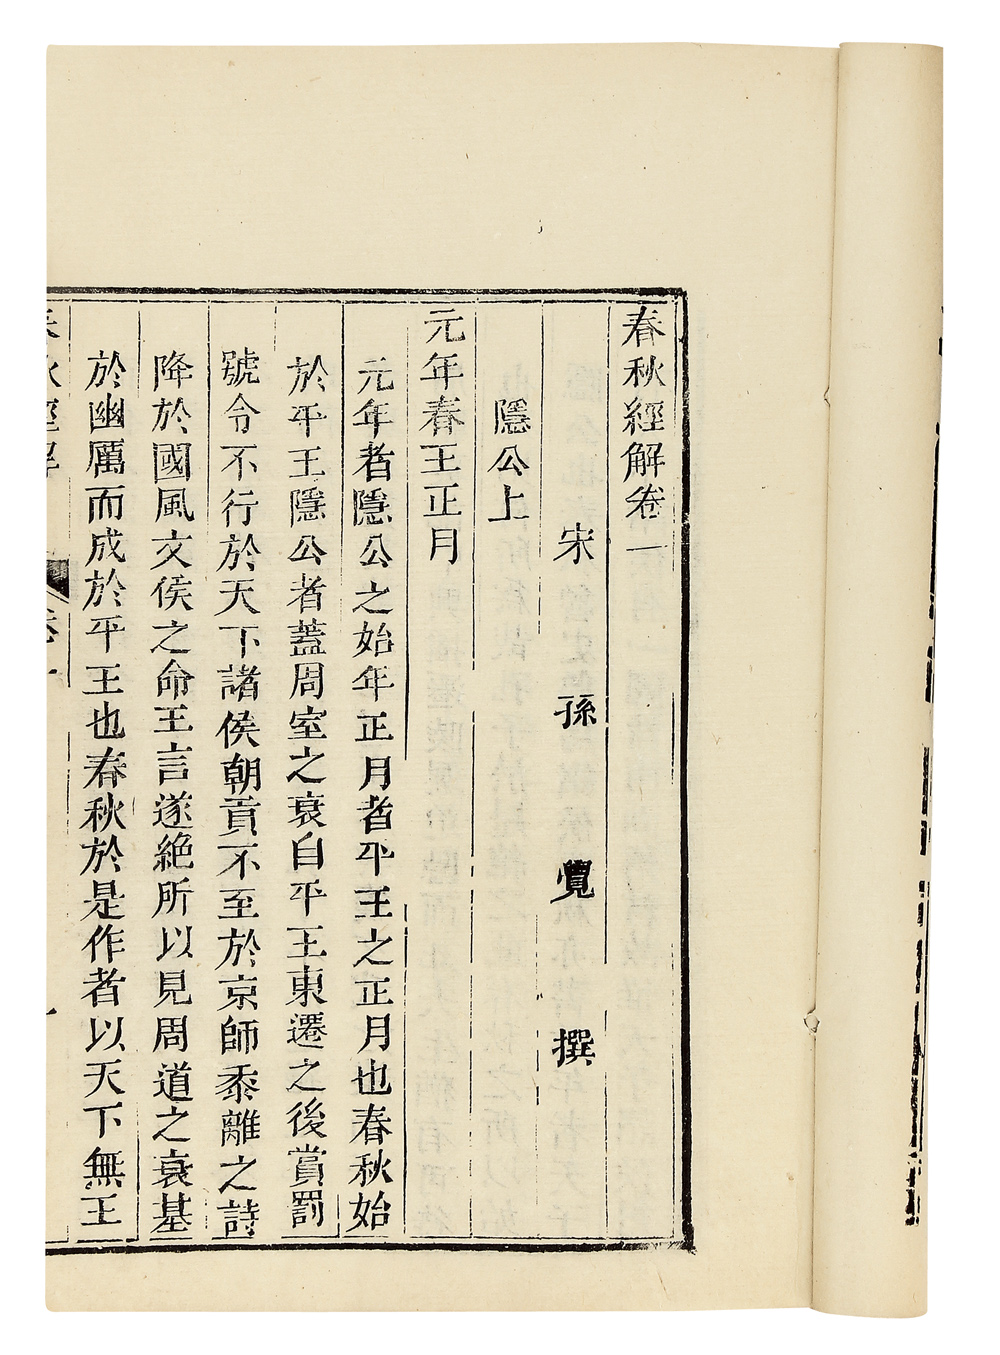 春秋經解卷一
宋 孫 覺 撰
隱公上
元年春王正月
元年者隱公之始年正月者平王之正月也春秋始
於平王隱公者蓋周室之衰自平王東遷之後賞罰
號令不行於天下諸侯朝貢不至於京師黍離之詩
降於國風文侯之命王言遂絶所以見周道之衰基
於幽厲而成於平王也春秋於是作者以天下無王